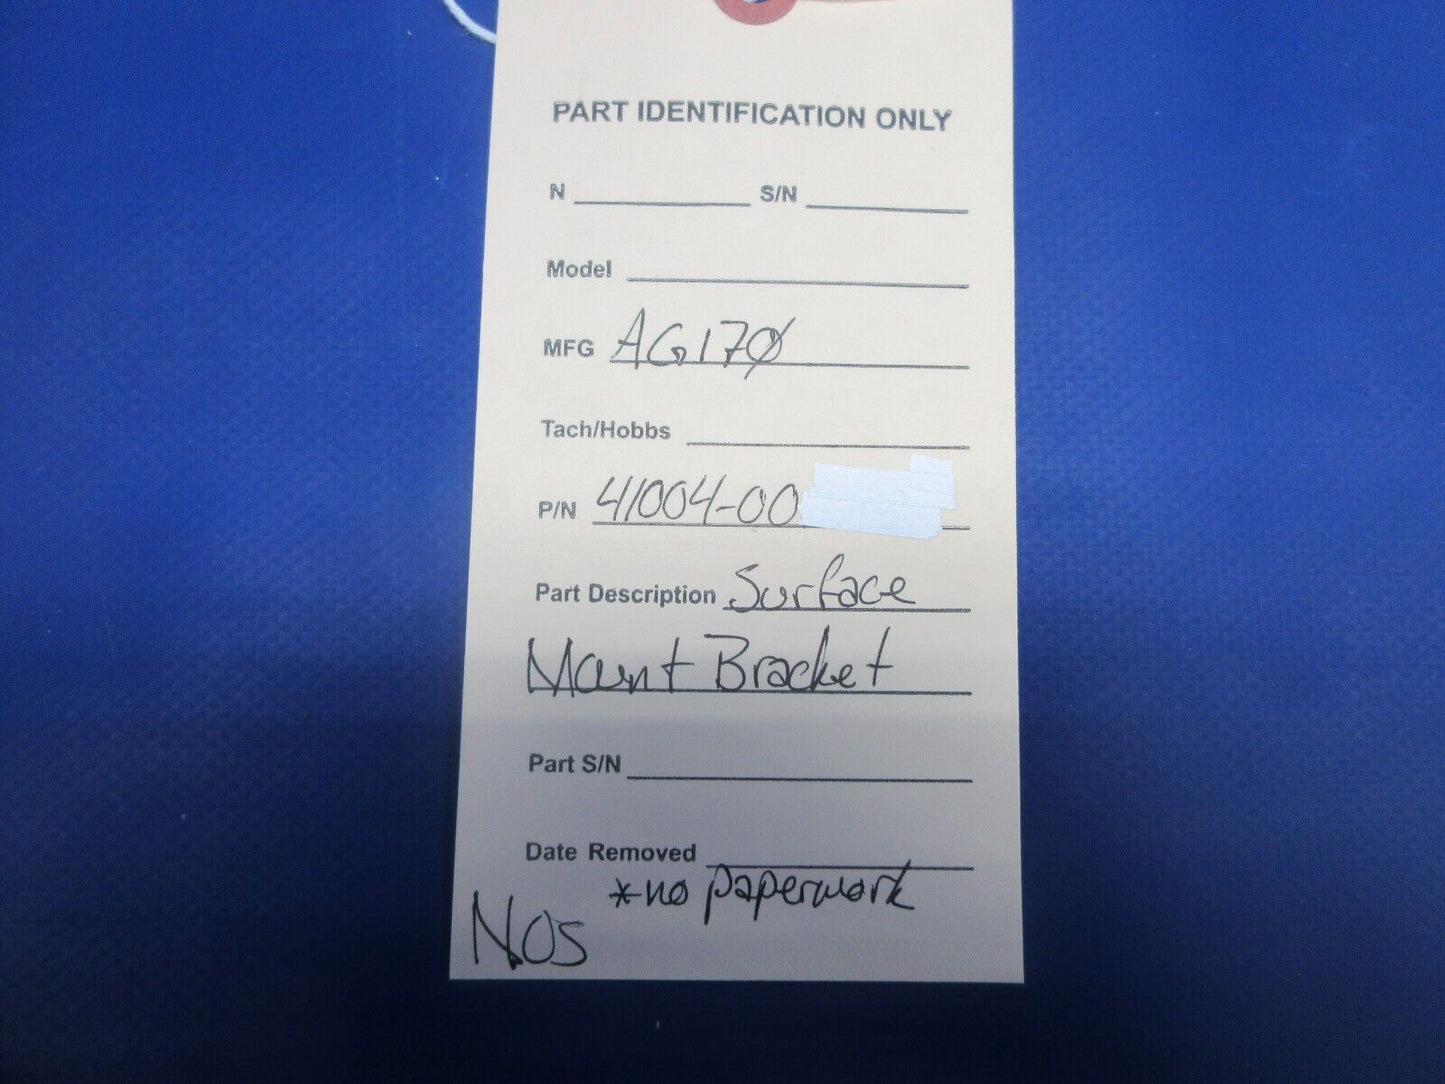 PART IDENTIFICATION ONLY
N S/N
Model
MFG AG170
Tach/Hobbs
P/N 41004-00
Part Description Surface
Mount Bracket
Part S/N
Date Removed
*no paperwork
NOS